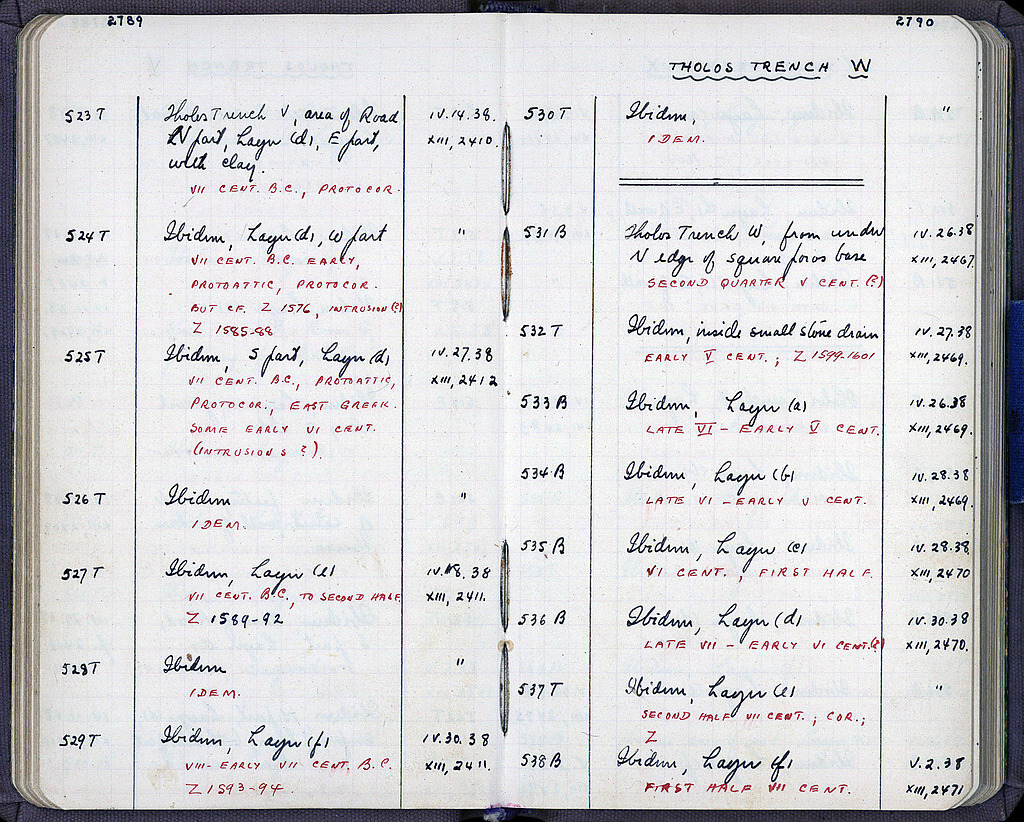 2789
523 T Tholos Trench V, area of Road IV.14.38.
N part, Layer (d), E part, XIII, 2410.
with clay.
VII CENT. B.C., PROTOCOR.
524 T Ibidem, Layer (d), W part "
VII CENT. B.C. EARLY,
PROTOATTIC, PROTOCOR.
BUT CF. Z 1576, INTRUSION (?)
Z 1585-88
525 T Ibidem, S part, Layer (d) IV.27.38
VII CENT. B.C., PROTOATTIC, XIII, 2412
PROTOCOR., EAST GREEK.
SOME EARLY VI CENT.
(INTRUSIONS ?).
526 T Ibidem "
IDEM.
527 T Ibidem, Layer (e) IV.18.38
VII CENT. B.C., TO SECOND HALF XIII, 2411.
Z 1589-92
528 T Ibidem "
IDEM.
529 T Ibidem, Layer (f) IV.30.38
VIII - EARLY VII CENT. B.C. XIII, 2411.
Z 1593-94
2790
THOLOS TRENCH W
530 T Ibidem, "
IDEM.
531 B Tholos Trench W, from under IV.26.38
N edge of square poros base XIII, 2467.
SECOND QUARTER V CENT. (?)
532 T Ibidem, inside small stone drain IV.27.38
EARLY V CENT.; Z 1599-1601 XIII, 2469.
533 B Ibidem, Layer (a) IV.26.38
LATE VI - EARLY V CENT. XIII, 2469.
534 B Ibidem, Layer (b) IV.28.38
LATE VI - EARLY V CENT. XIII, 2469.
535 B Ibidem, Layer (c) IV.28.38
VI CENT., FIRST HALF. XIII, 2470
536 B Ibidem, Layer (d) IV.30.38
LATE VII - EARLY VI CENT. (?) XIII, 2470.
537 T Ibidem, Layer (e) "
SECOND HALF VII CENT.; COR.;
Z
538 B Ibidem, Layer (f) V.2.38
FIRST HALF VII CENT. XIII, 2471